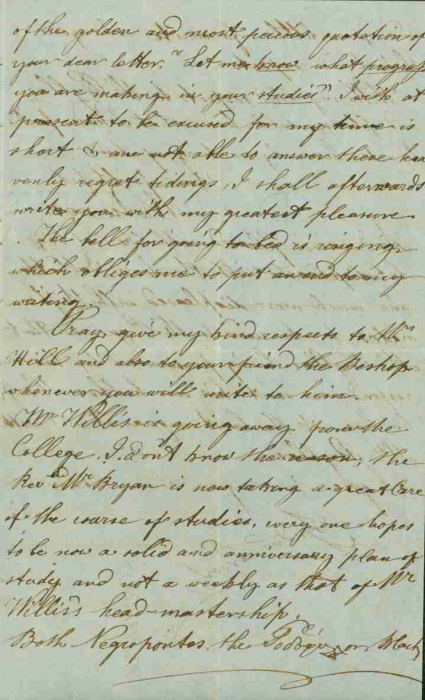 of the golden and most pecious quotation of
your dear letter. "Let me know what progress
you are making in your studies". I wish at
present to be excused for my time is
short & am not able to answer these hea
venly regret tidings, I shall afterwards
write you with my greatest pleasure
. The bell for going to bed is ringing,
which obliges me to put an end to my
writing.
Pray, give my kind respects to Mrs
Hill and also to your friend the Bishop
whenever you will write to him.
Mr Willis is going away from the
College. I don't know the reason, the
Revd Mr Bryan is now taking a great Care
of the course of studies, every one hopes
to be now a solid and anniversary plan of
study and not a weekly as that of Mr
Willis's head-mastership.
Both Negropontes, the or Black